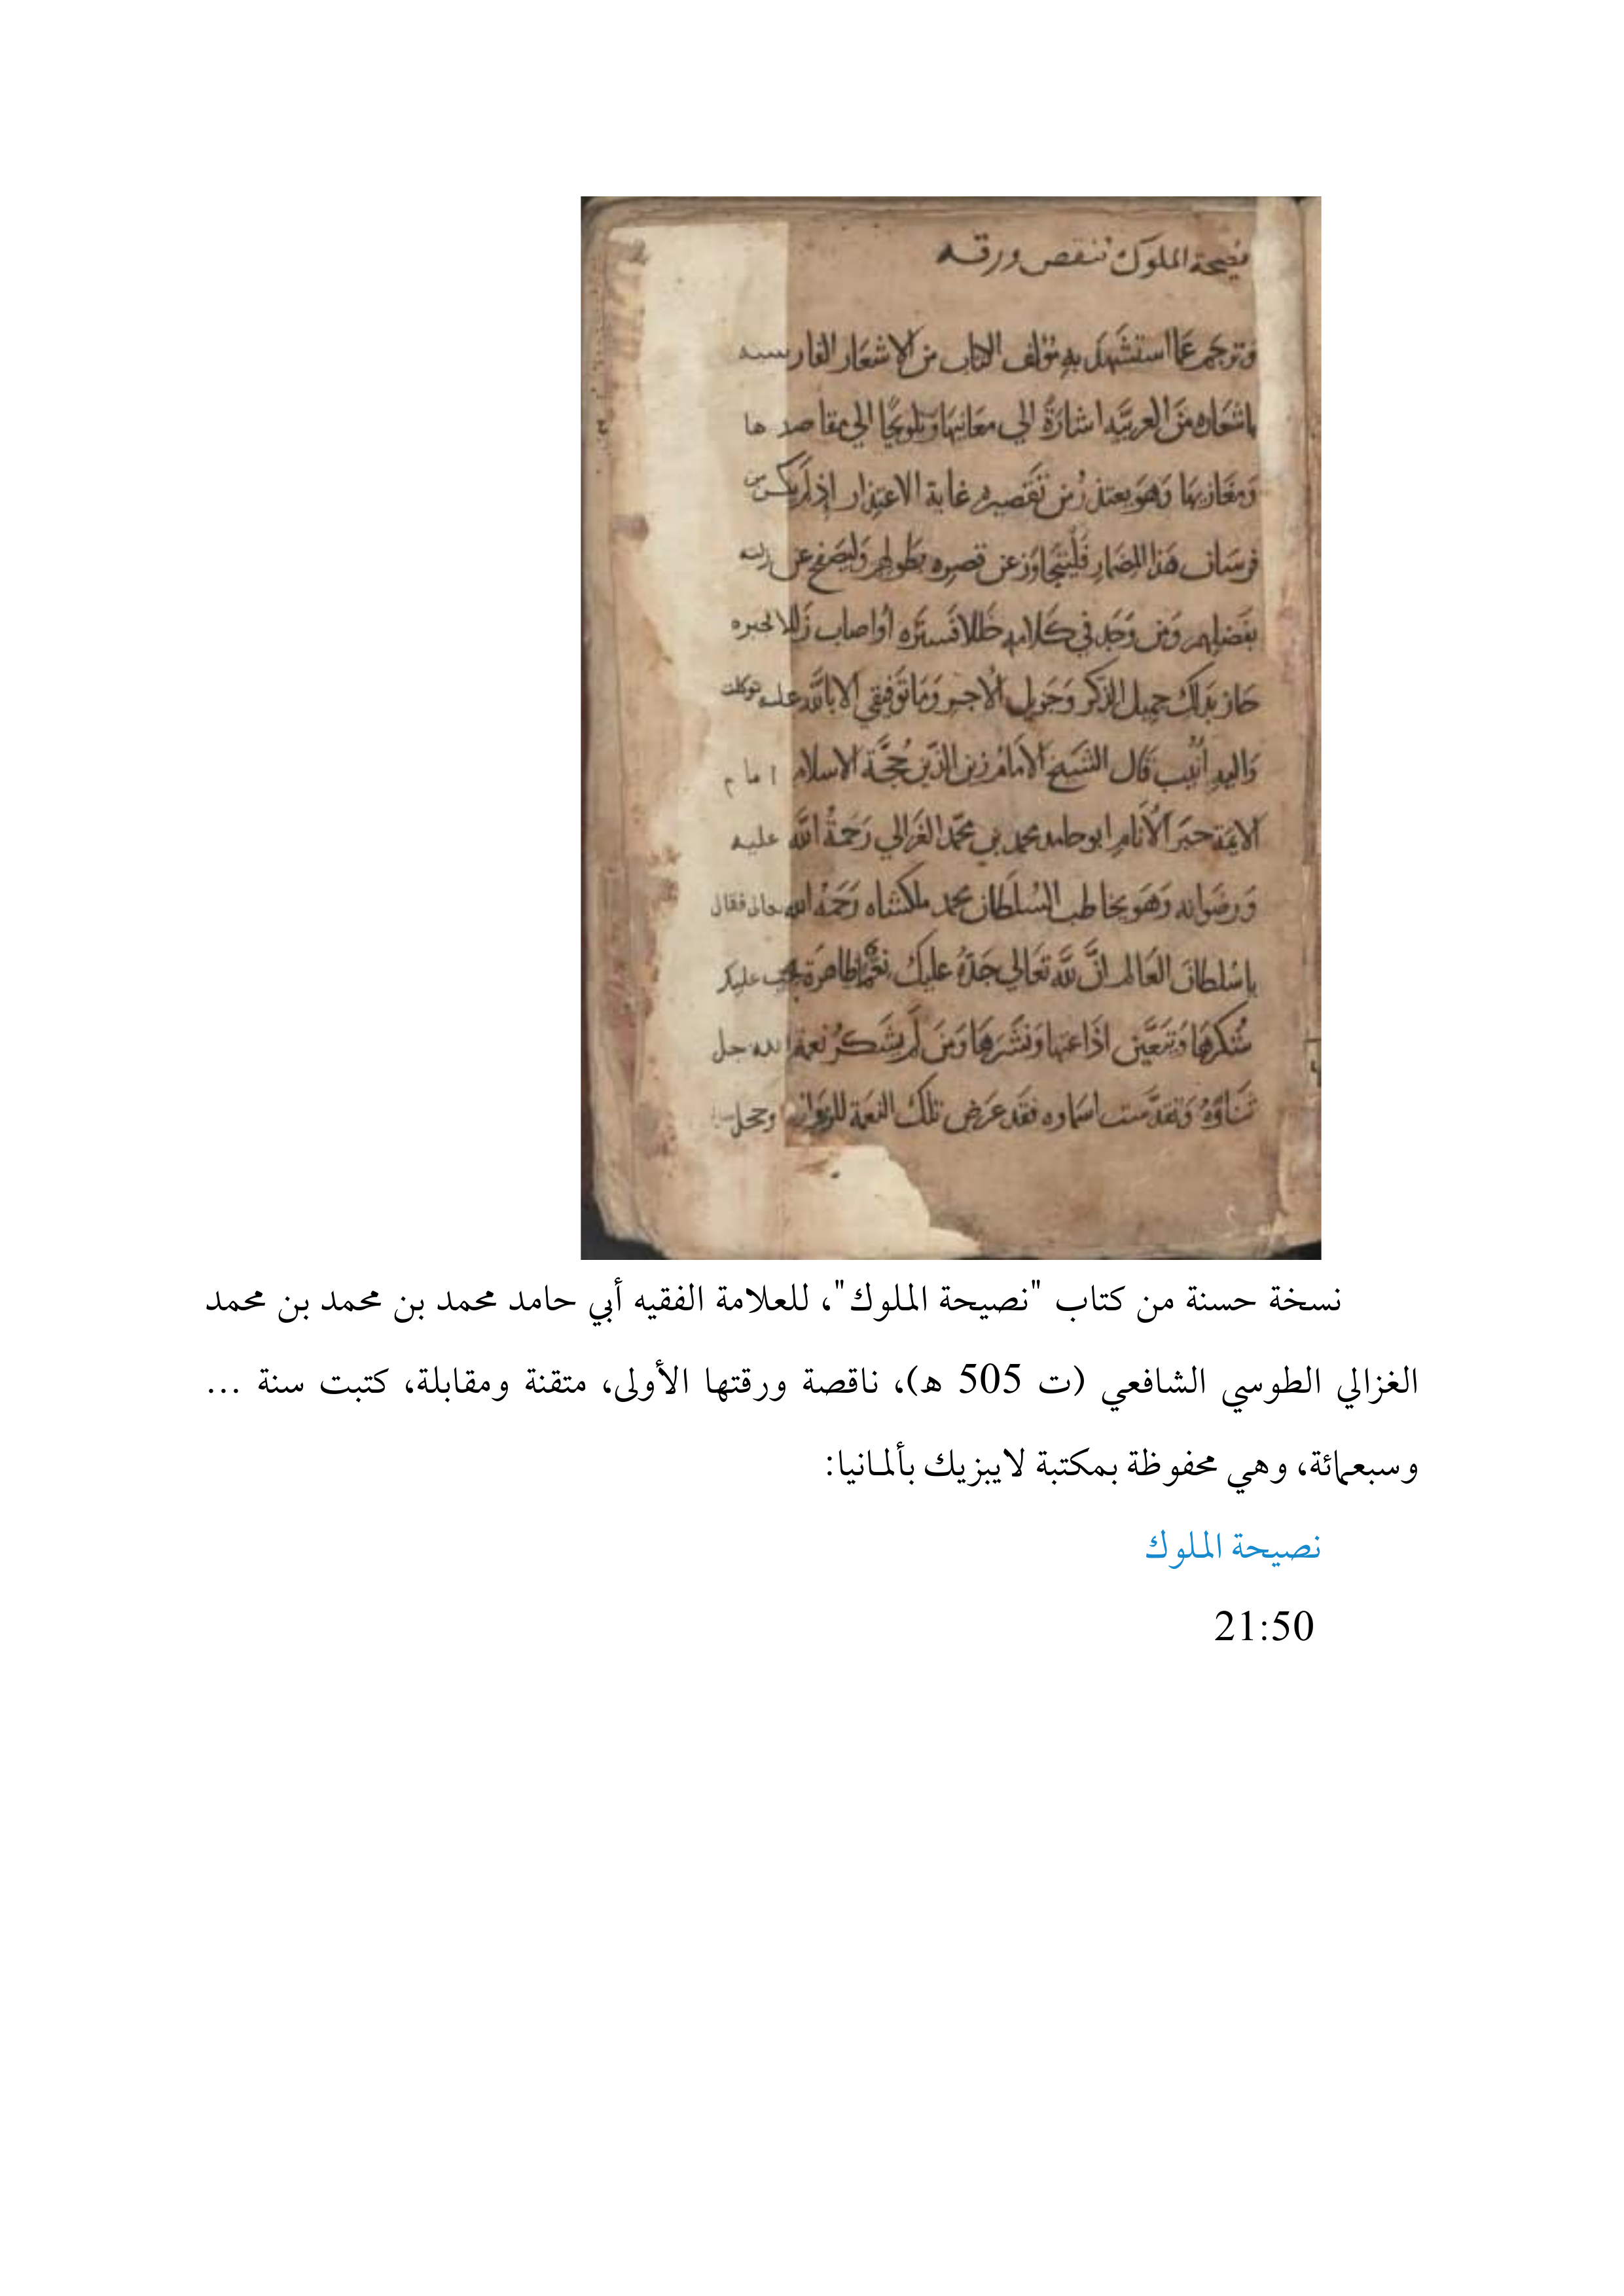 نصيحة الملوك تنقص ورقه
وترجم عما استشهد به مؤلف الكتاب من الاشعار الفارسيه
باشعاره من العربيه اشارة الي معانيها وتلويحًا الي مقاصدها
ومغازيها وهو يعتذر من تقصيره غاية الاعتذار إذ لم يكن من
فرسان هذا المضمار فليتجاوز عن قصيره بطولهم وليصفح عن زلته
بفضلهم ومن وجد في كلامه خللا فستره أو اصاب زللا
حاز بذلك جميل الذكر وجزيل الاجر وما توفيقي الا بالله عليه توكلت
واليه أنيب قال الشيخ الامام زين الدين حُجَّة الاسلام امام
الايمة حبر الأنام ابو حامد محمد بن محمد الغزالي رحمة الله عليه
ورضوانه وهو يخاطب السلطان محمد ملكشاه رحمه الله تعالى فقال
يا سلطان العالم انَّ لله تعالي جَدّهُ عليك نعمًا ظاهرة يجب عليك
شكرها وتتعين اذاعتها ونشرها ومن لم يشكر نعمة الله جل
ثناؤه وتقدست اسماوه فقد عرض تلك النعمة للزوال
نسخة حسنة من كتاب "نصيحة الملوك"، للعلامة الفقيه أبي حامد محمد بن محمد بن محمد
الغزالي الطوسي الشافعي (ت 505 هـ)، ناقصة ورقتها الأولى، متقنة ومقابلة، كتبت سنة ...
وسبعمائة، وهي محفوظة بمكتبة لايبزيك بألمانيا:
نصيحة الملوك
21:50